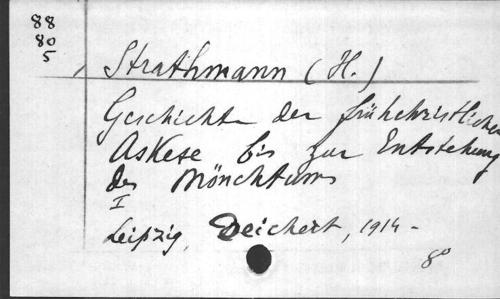 88
80
5
Strathmann (H.)
Geschichte der frühchristlichen
Askese bis zur Entstehung
des Mönchtums
I
Leipzig, Deichert, 1914-
8º